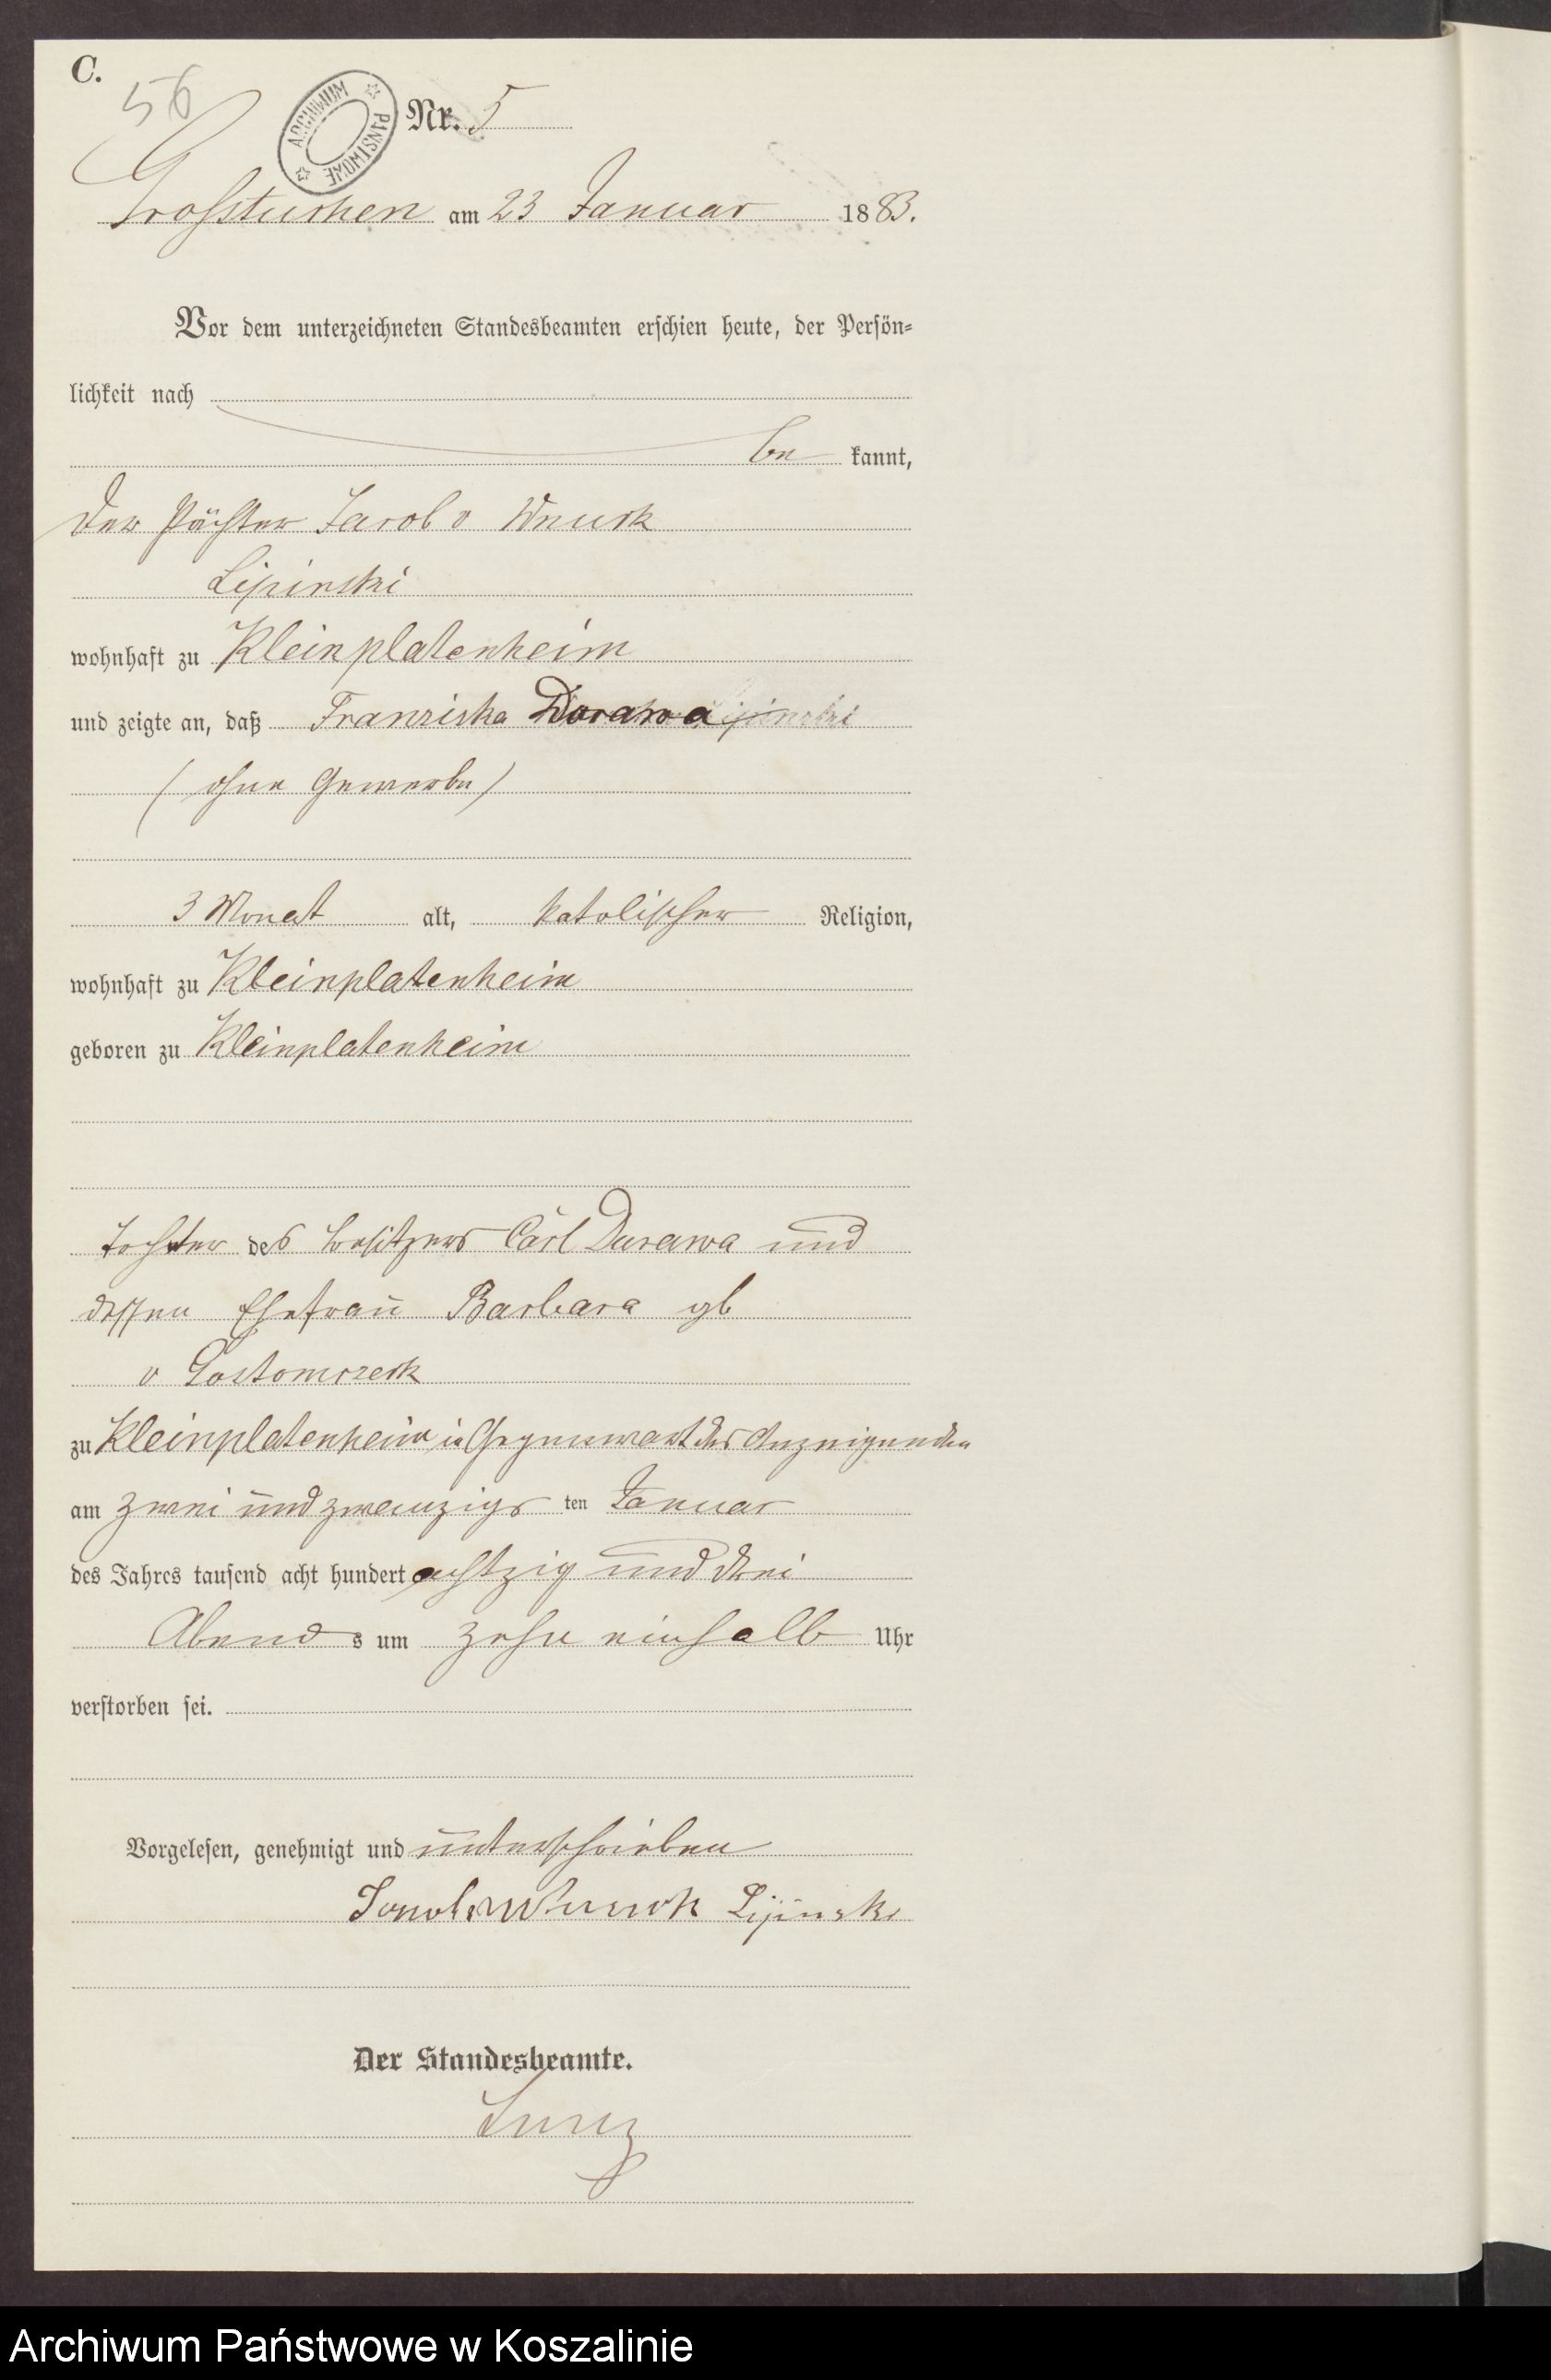 C.
56
ARCHIWUM PAŃSTWOWE
Nr. 5
Grosstuchen am 23 Januar 1883.
Vor dem unterzeichneten Standesbeamten erschien heute, der Persön-
lichkeit nach
be kannt,
der Pächter Jacob v Wnuck
Lipinski
wohnhaft zu Kleinplatenheim
und zeigte an, daß Franziska Dorawa
(ohne Gewerbe)
3 Monat alt, katolischer Religion,
wohnhaft zu Kleinplatenheim
geboren zu Kleinplatenheim
Tochter des Besitzers Carl Durawa und
dessen Ehefrau Barbara gb
v Gostomczeck
zu Kleinplatenheim in Gegenwart des Anzeigenden
am zwei und zwanzigs ten Januar
des Jahres tausend acht hundert achtzig und drei
Abend s um zehn einhalb Uhr
verstorben sei.
Vorgelesen, genehmigt und unterschrieben
Jacob v Wnuck Lipinski
Der Standesbeamte.
Archiwum Państwowe w Koszalinie